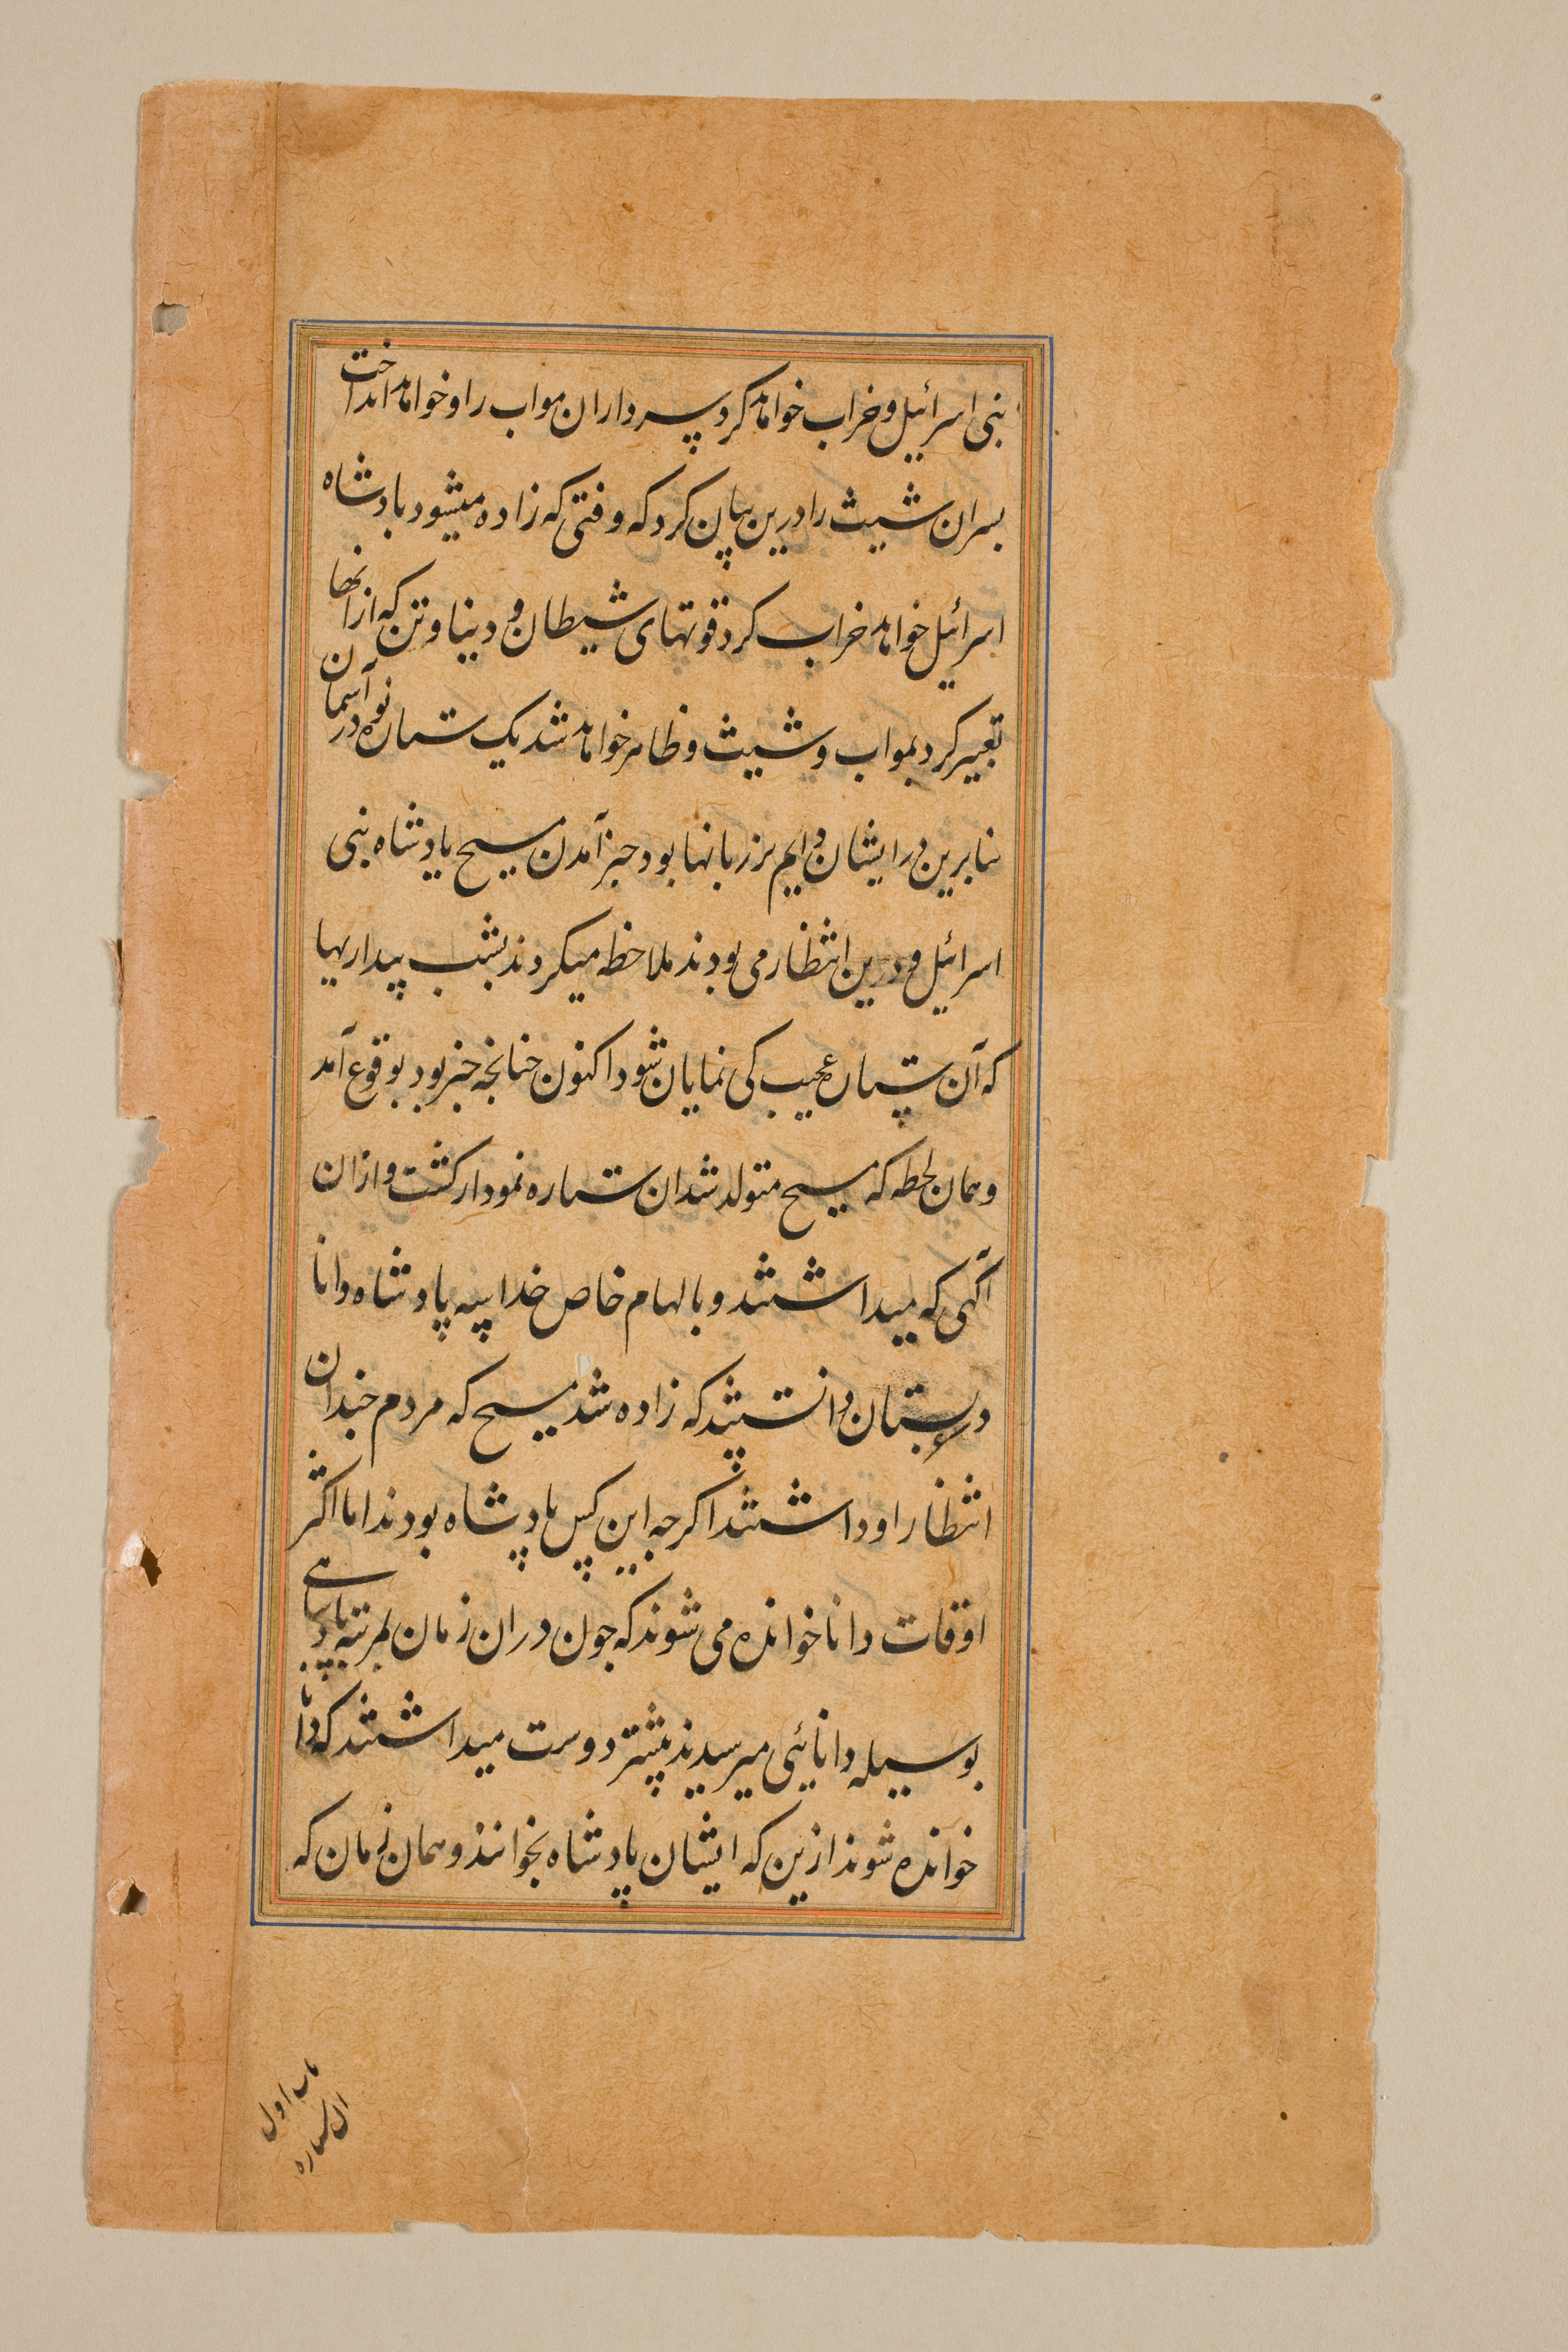 بنی اسرائیل و خراب خواهد کرد پسرداران مواب را و خواهد انداخت
پسران شیث را درین بیان کرد که وقتی که زاده میشود بادشاه
اسرائیل خواهد خراب کرد قوتهای شیطان و دینا و تن که ازانها
تعبیر کرد بمواب و شیث و ظاهر خواهد شد یک ستاره نو در آسمان
بنابرین در ایشان دایم بر زبانها بود خبر آمدن مسیح پادشاه بنی
اسرائیل و درین انتظار می بودند ملاحظه میکردند بشب بیداریها
که آن ستاره عجیب کی نمایان شود اکنون چنانچه خبر بود بوقوع آمد
و همان لحظه که مسیح متولد شد ان ستاره نمودار کشت و ازان
آکهی که میداشتند و بالهام خاص خدا سه پادشاه دانا
در عربستان دانستند که زاده شد مسیح که مردم چندان
انتظار او داشتند اکرچه این کس پادشاه بودند اما اکثر
اوقات دانا خوانده می شوند که چون دران زمان بمرتبه پادشاهی
بوسیله دانائی میرسیدند بیشتر دوست میداشتند که دانا
خوانده شوند ازین که ایشان پادشاه بخوانند و همان زمان که
باب اول
ان ستاره